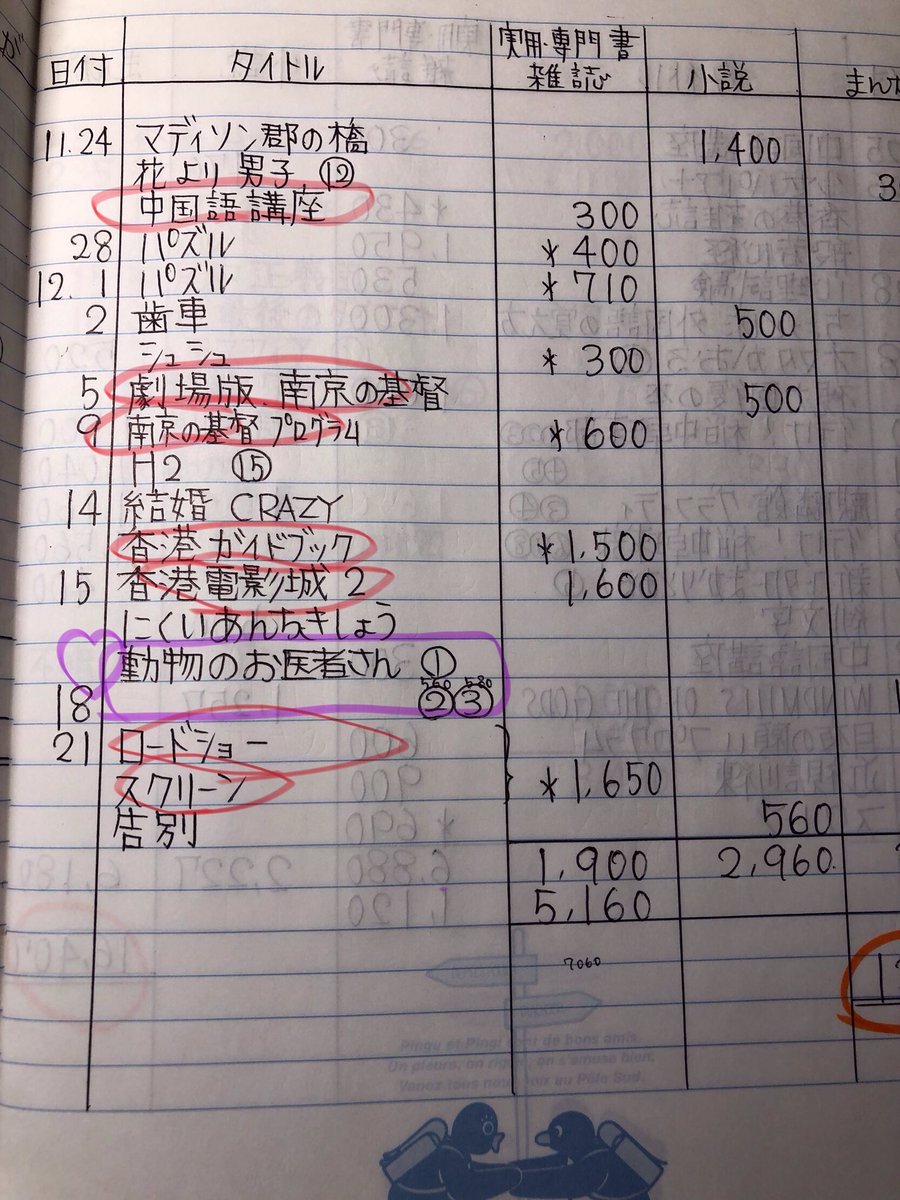 日付 タイトル 実用・専門書 雑誌 小説 まん
11.24 マディソン郡の橋 1,400
花より男子 ⑫ 3
中国語講座 300
28 パズル *400
12.1 パズル *710
2 歯車 500
シュシュ *300
5 劇場版 南京の基督 500
9 南京の基督 プログラム *600
H2 ⑮
14 結婚 CRAZY
香港ガイドブック *1,500
15 香港電影城 2 1,600
にくいあんちきしょう
動物のお医者さん ①
560 580
18 ②③ 1
21 ロードショー
スクリーン *1,650
告別 560
1,900 2,960
5,160
7060
Pingu et Pingi sont de bons amis.
On pleure, on rigole, on s'amuse bien.
Venez tous nous voir au Pôle Sud.